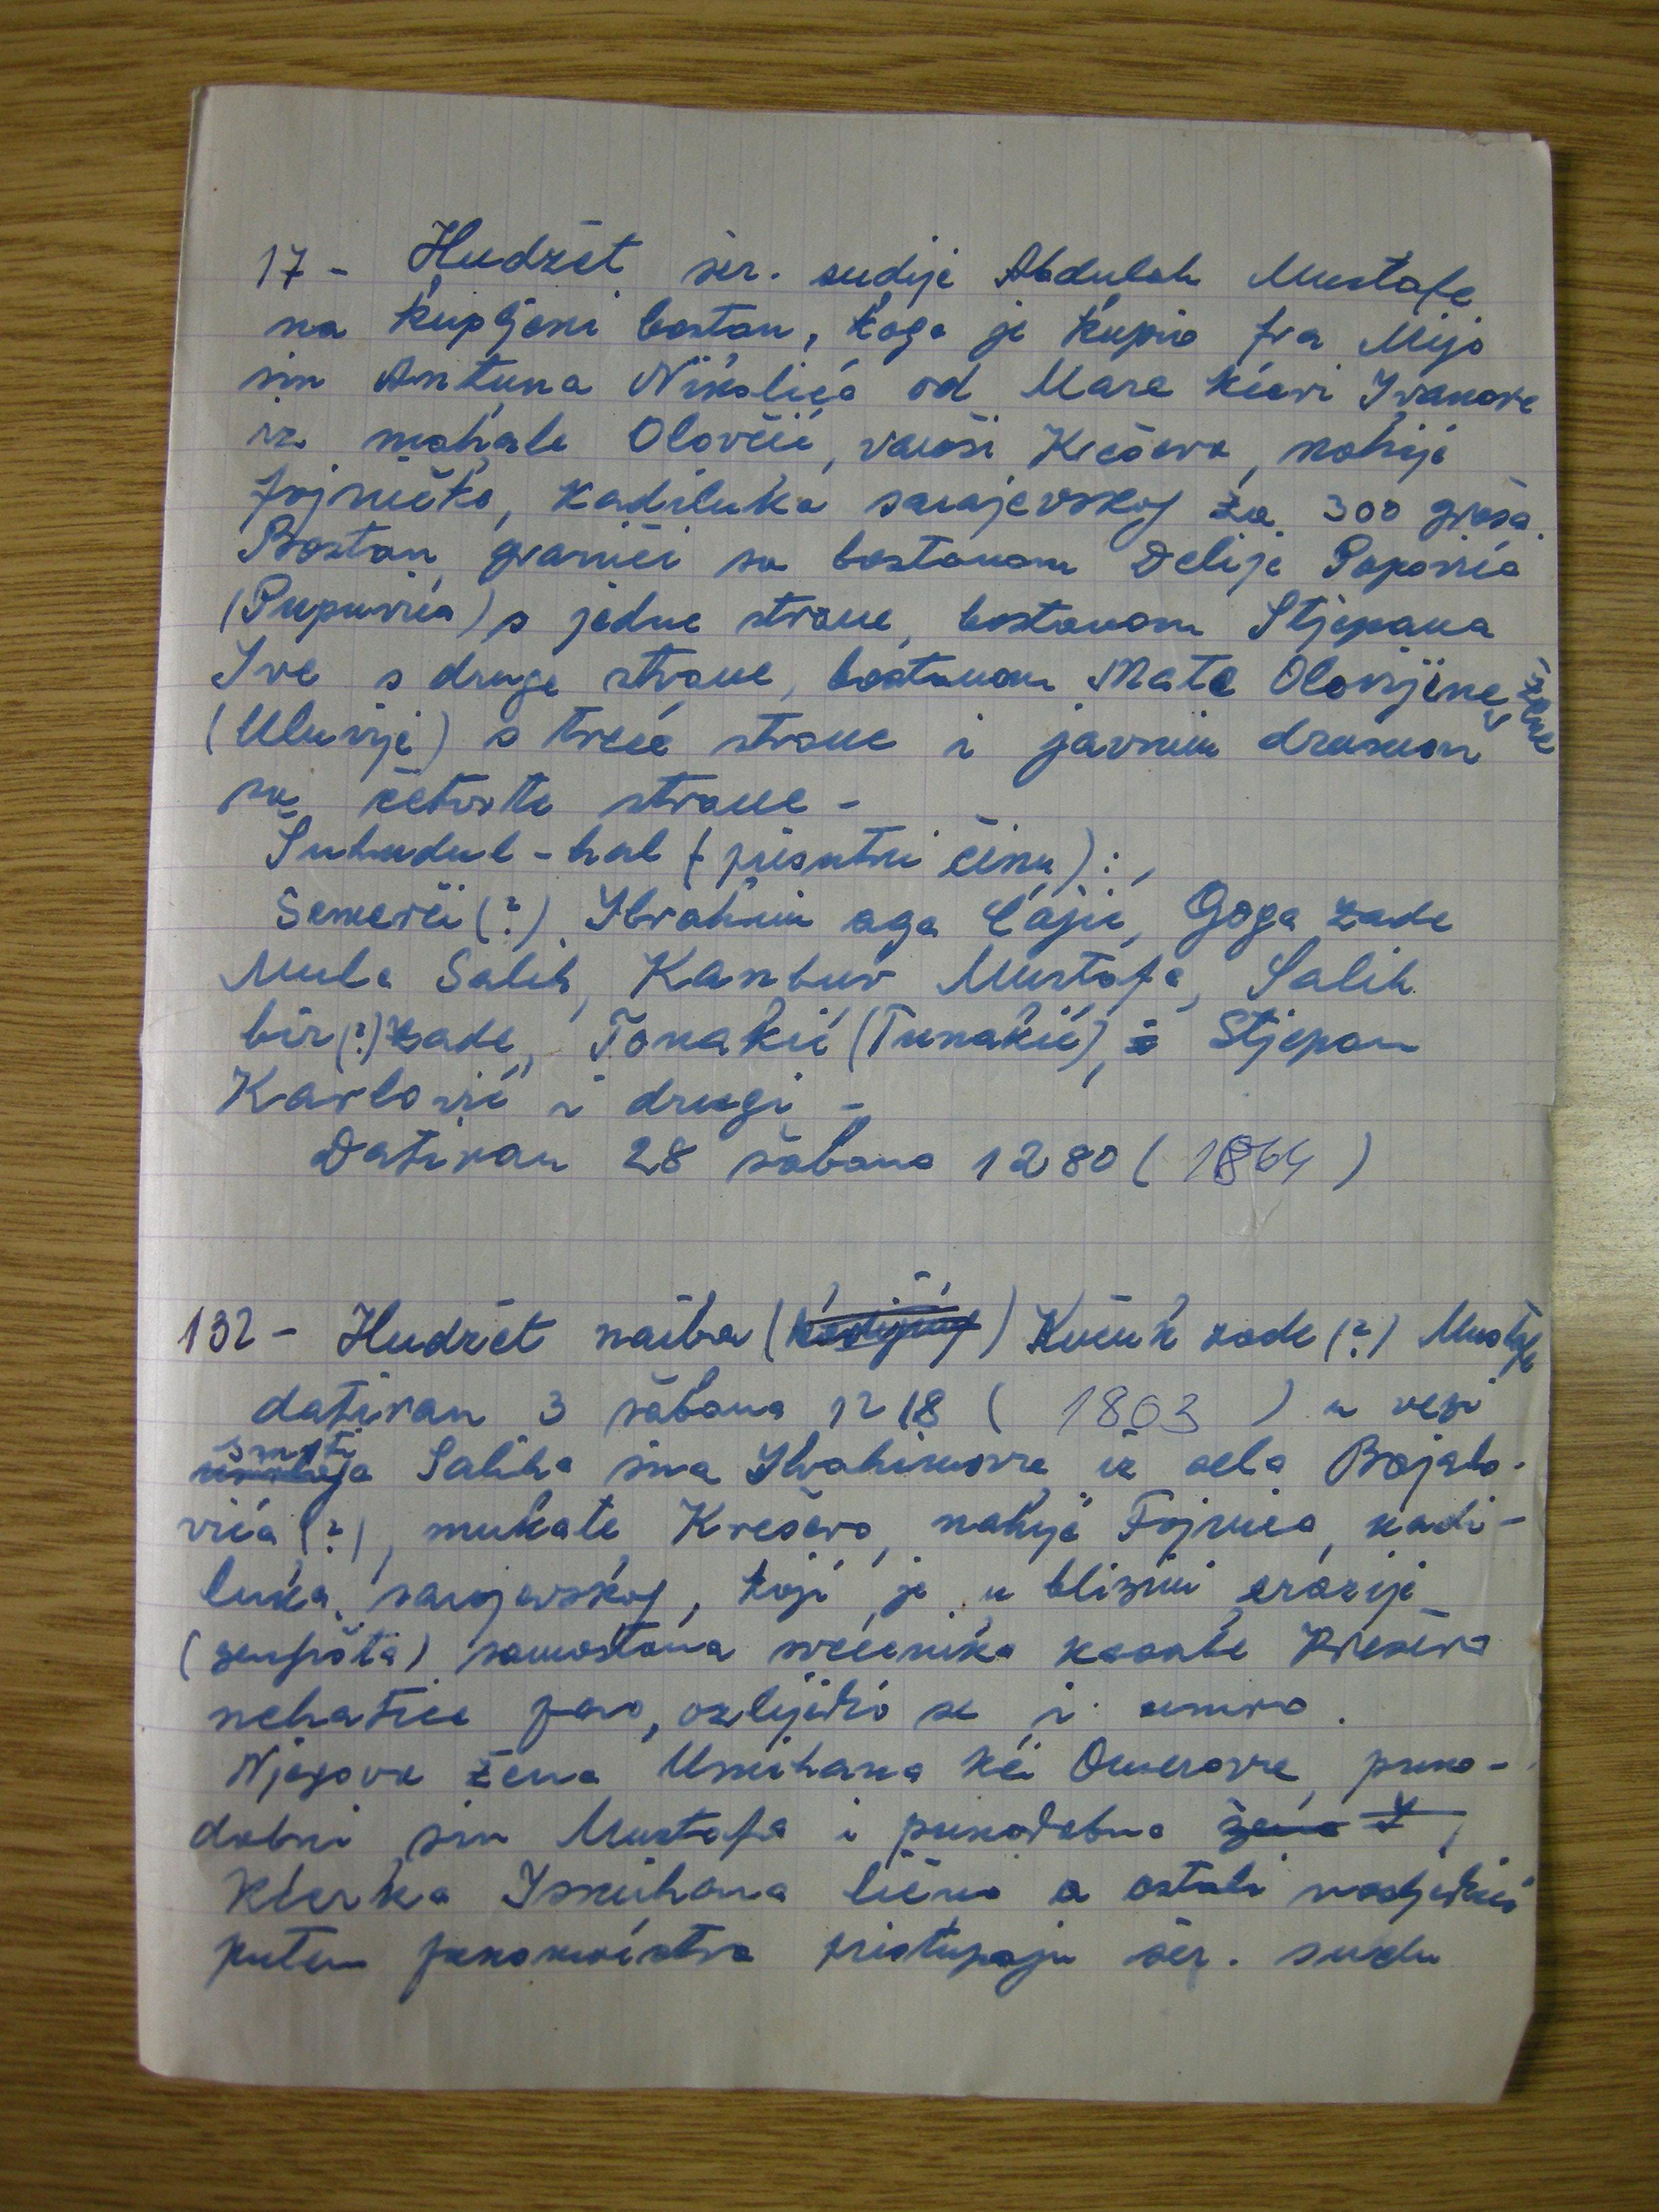 17 - Hudžet šer. sudije Abdulah Mustafe
na kupljeni bostan, koga je kupio fra Mijo
sin Antuna Nikolića od Mare kćeri Ivanove
iz mahale Olovčić, varoši Kreševa, nahije
fojničke, kadiluka sarajevskog za 300 groša.
Bostan graniči sa bostanom Delije Popovića
(Pupuvića) s jedne strane, bostanom Stjepana
Ive s druge strane, bostanom Mate Olovijine žene
(Uluvije) s treće strane i javnim drumom
sa četvrte strane -
Šuhudul-hal (prisutni činu):
Semerči (?) Ibrahim aga Čajić, Goga zade
Mula Salih, Kanbur Mustafa, Salih
bir(?)zade, Tonakić (Tunakić), Stjepan
Karlović i drugi -
Datiran 28 šabana 1280 ( 1864 )
132 - Hudžet naiba ( ) Kučuk zade (?) Mustafe
datiran 3 šabana 1218 ( 1803 ) u vezi
smrti Saliha sina Ibrahimova iz sela Bojalo-
vića (?), mukate Kreševo, nahije Fojnica, kadi-
luka sarajevskog, koji je u blizini erazije
(zemljišta) samostana svećenika kasabe Kreševa
nehatice pao, ozlijedio se i umro.
Njegova žena Umihana kći Omerova, puno-
dobni sin Mustafa i punodobna
kćerka Ismihana lično a ostali nasljednici
putem punomoćstva pristupaju šer. sudu